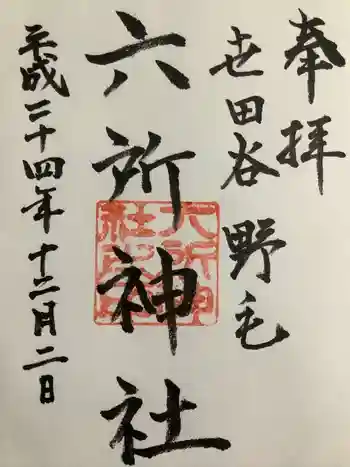 奉拝
世田谷野毛
六所神社
平成二十四年十二月二日